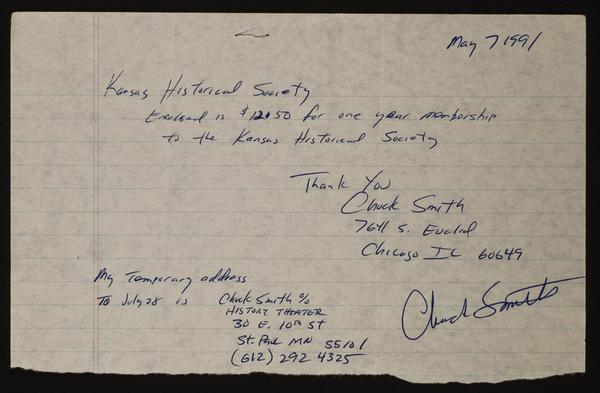 May 7 1991
Kansas Historical Society
Enclosed is $12.50 for one year membership
to the Kansas Historical Society
Thank You
Chuck Smith
7641 S. Euclid
Chicago IL 60649
My Temporary address
To July 28 is Chuck Smith %
HISTORY THEATER
30 E. 10th St
St. Paul MN 55101
(612) 292 4325
Chuck Smith